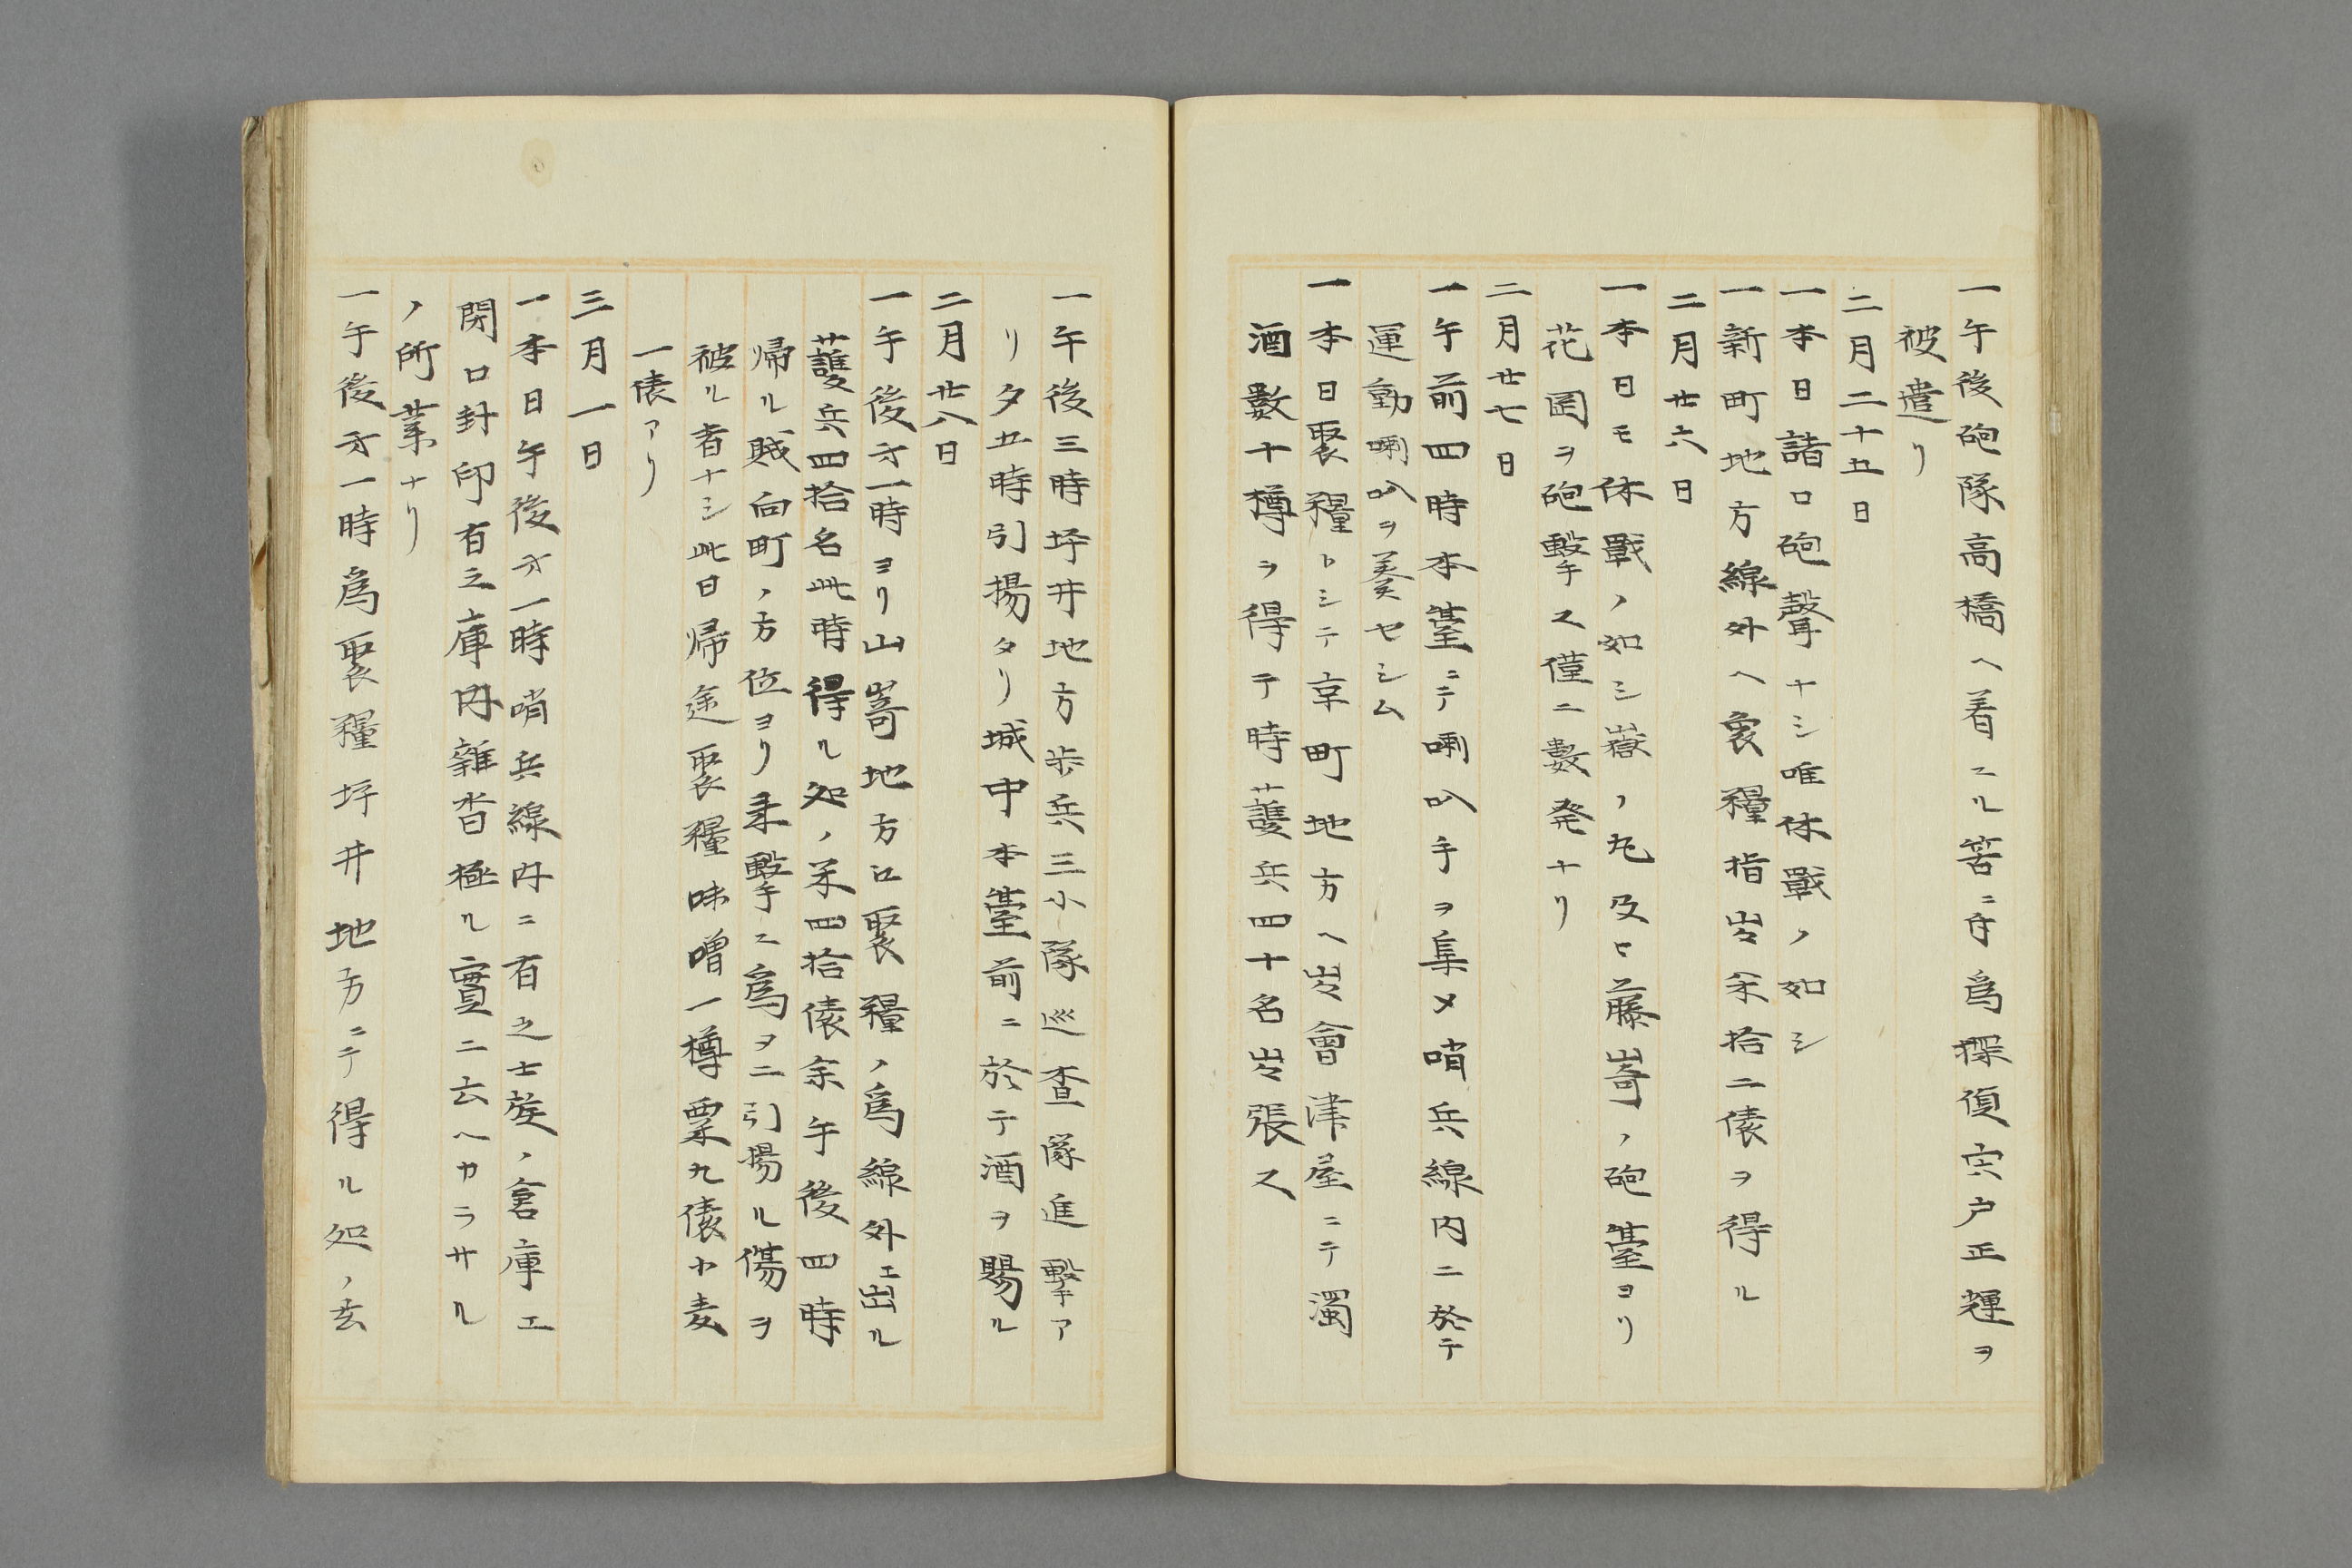 一午後砲隊高橋ヘ着スル筈ニ付為探偵宍戸正輝ヲ
被遣リ
二月二十五日
一本日諸口砲聲ナシ唯休戰ノ如シ
一新町地方線外ヘ裒糧指出米拾二俵ヲ得ル
二月廿六日
一本日モ休戰ノ如シ嶽ノ丸及ヒ藤嵜ノ砲臺ヨリ
花岡ヲ砲擊ス僅ニ數発ナリ
二月廿七日
一午前四時本臺ニテ喇叭手ヲ集メ哨兵線内ニ於テ
運動喇叭ヲ奏セシム
一本日裒糧トシテ京町地方ヘ出會津屋ニテ濁
酒數十樽ヲ得テ時護兵四十名出張ス
一午後三時坪井地方歩兵三小隊巡査隊進擊ア
リタ五時引揚タリ城中本臺前ニ於テ酒ヲ賜ル
二月廿八日
一午後才一時ヨリ山嵜地方ニ裒糧ノ為線外エ出ル
護兵四拾名此時得ル処ノ米四拾俵余午後四時
帰ル賊向町ノ方位ヨリ来擊之為ヲニ引揚ル傷ヲ
被ル者ナシ此日帰途裒糧味噌一樽粟九俵小麦
一俵アリ
三月一日
一本日午後才一時哨兵線内ニ有之士族ノ倉庫エ
閉口封印有之庫内雜沓極ル實ニ云ヘカラサル
ノ所業ナリ
一午後才一時為裒糧坪井地方ニテ得ル処ノ玄